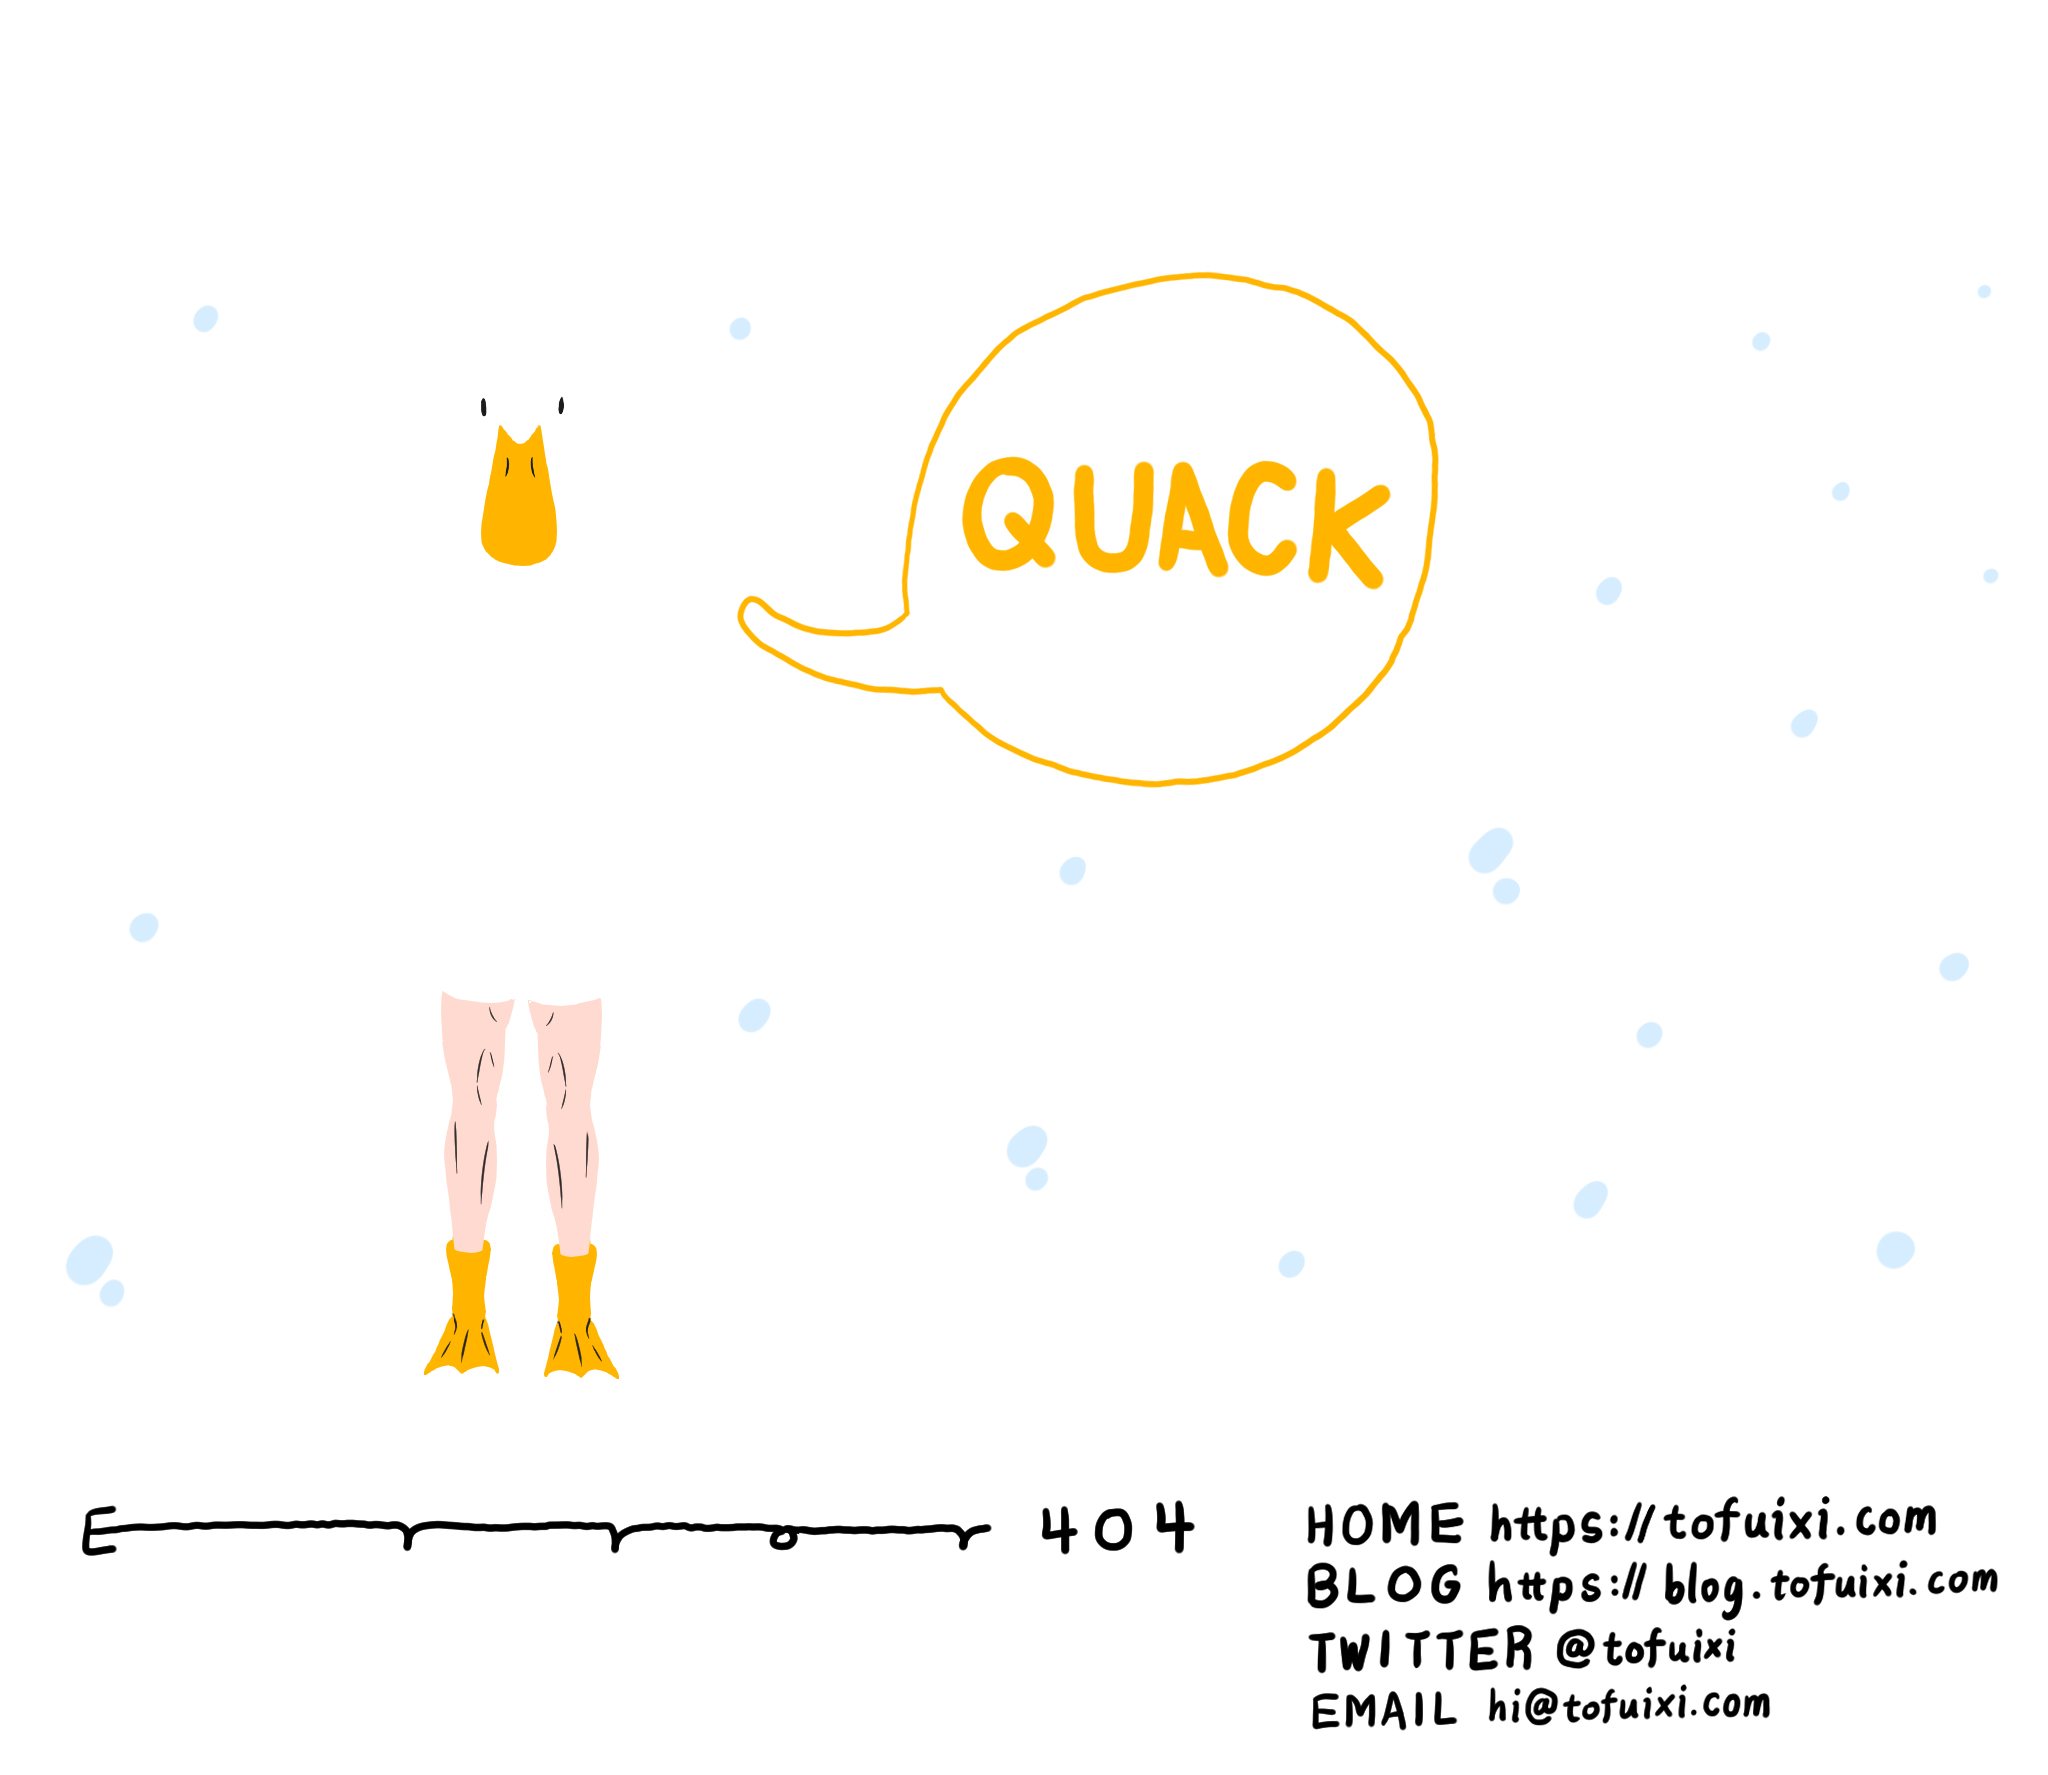 QUACK
Error 404
HOME https://tofuixi.com
BLOG https://blog.tofuixi.com
TWITTER @tofuixi
EMAIL hi@tofuixi.com